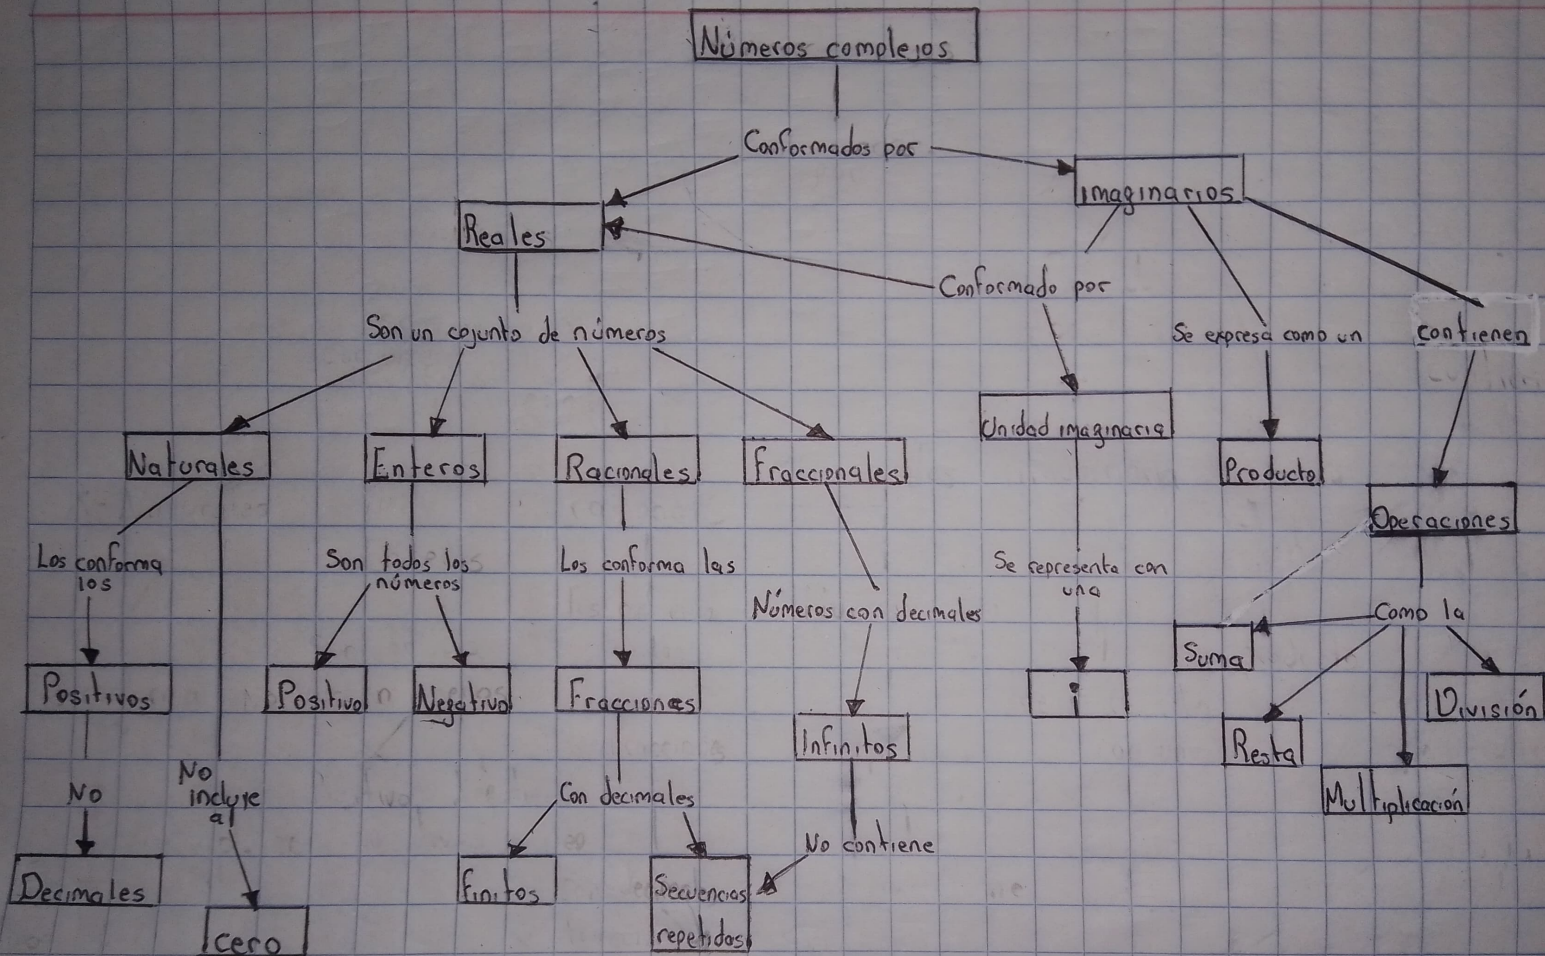 Números complejos
Conformados por
Reales
imaginarios
Conformado por
Son un cojunto de números
Se expresa como un
contienen
Naturales
Enteros
Racionales
Fraccionales
Unidad imaginaria
Producto
Operaciones
Los conforma
los
Son todos los
números
Los conforma las
Números con decimales
Se representa con
una
Como la
Suma
Positivos
Positivo
Negativo
Fracciones
Infinitos
i
División
Resta
Multiplicación
No
No
incluye
al
Con decimales
No contiene
Decimales
cero
finitos
Secuencias
repetidas